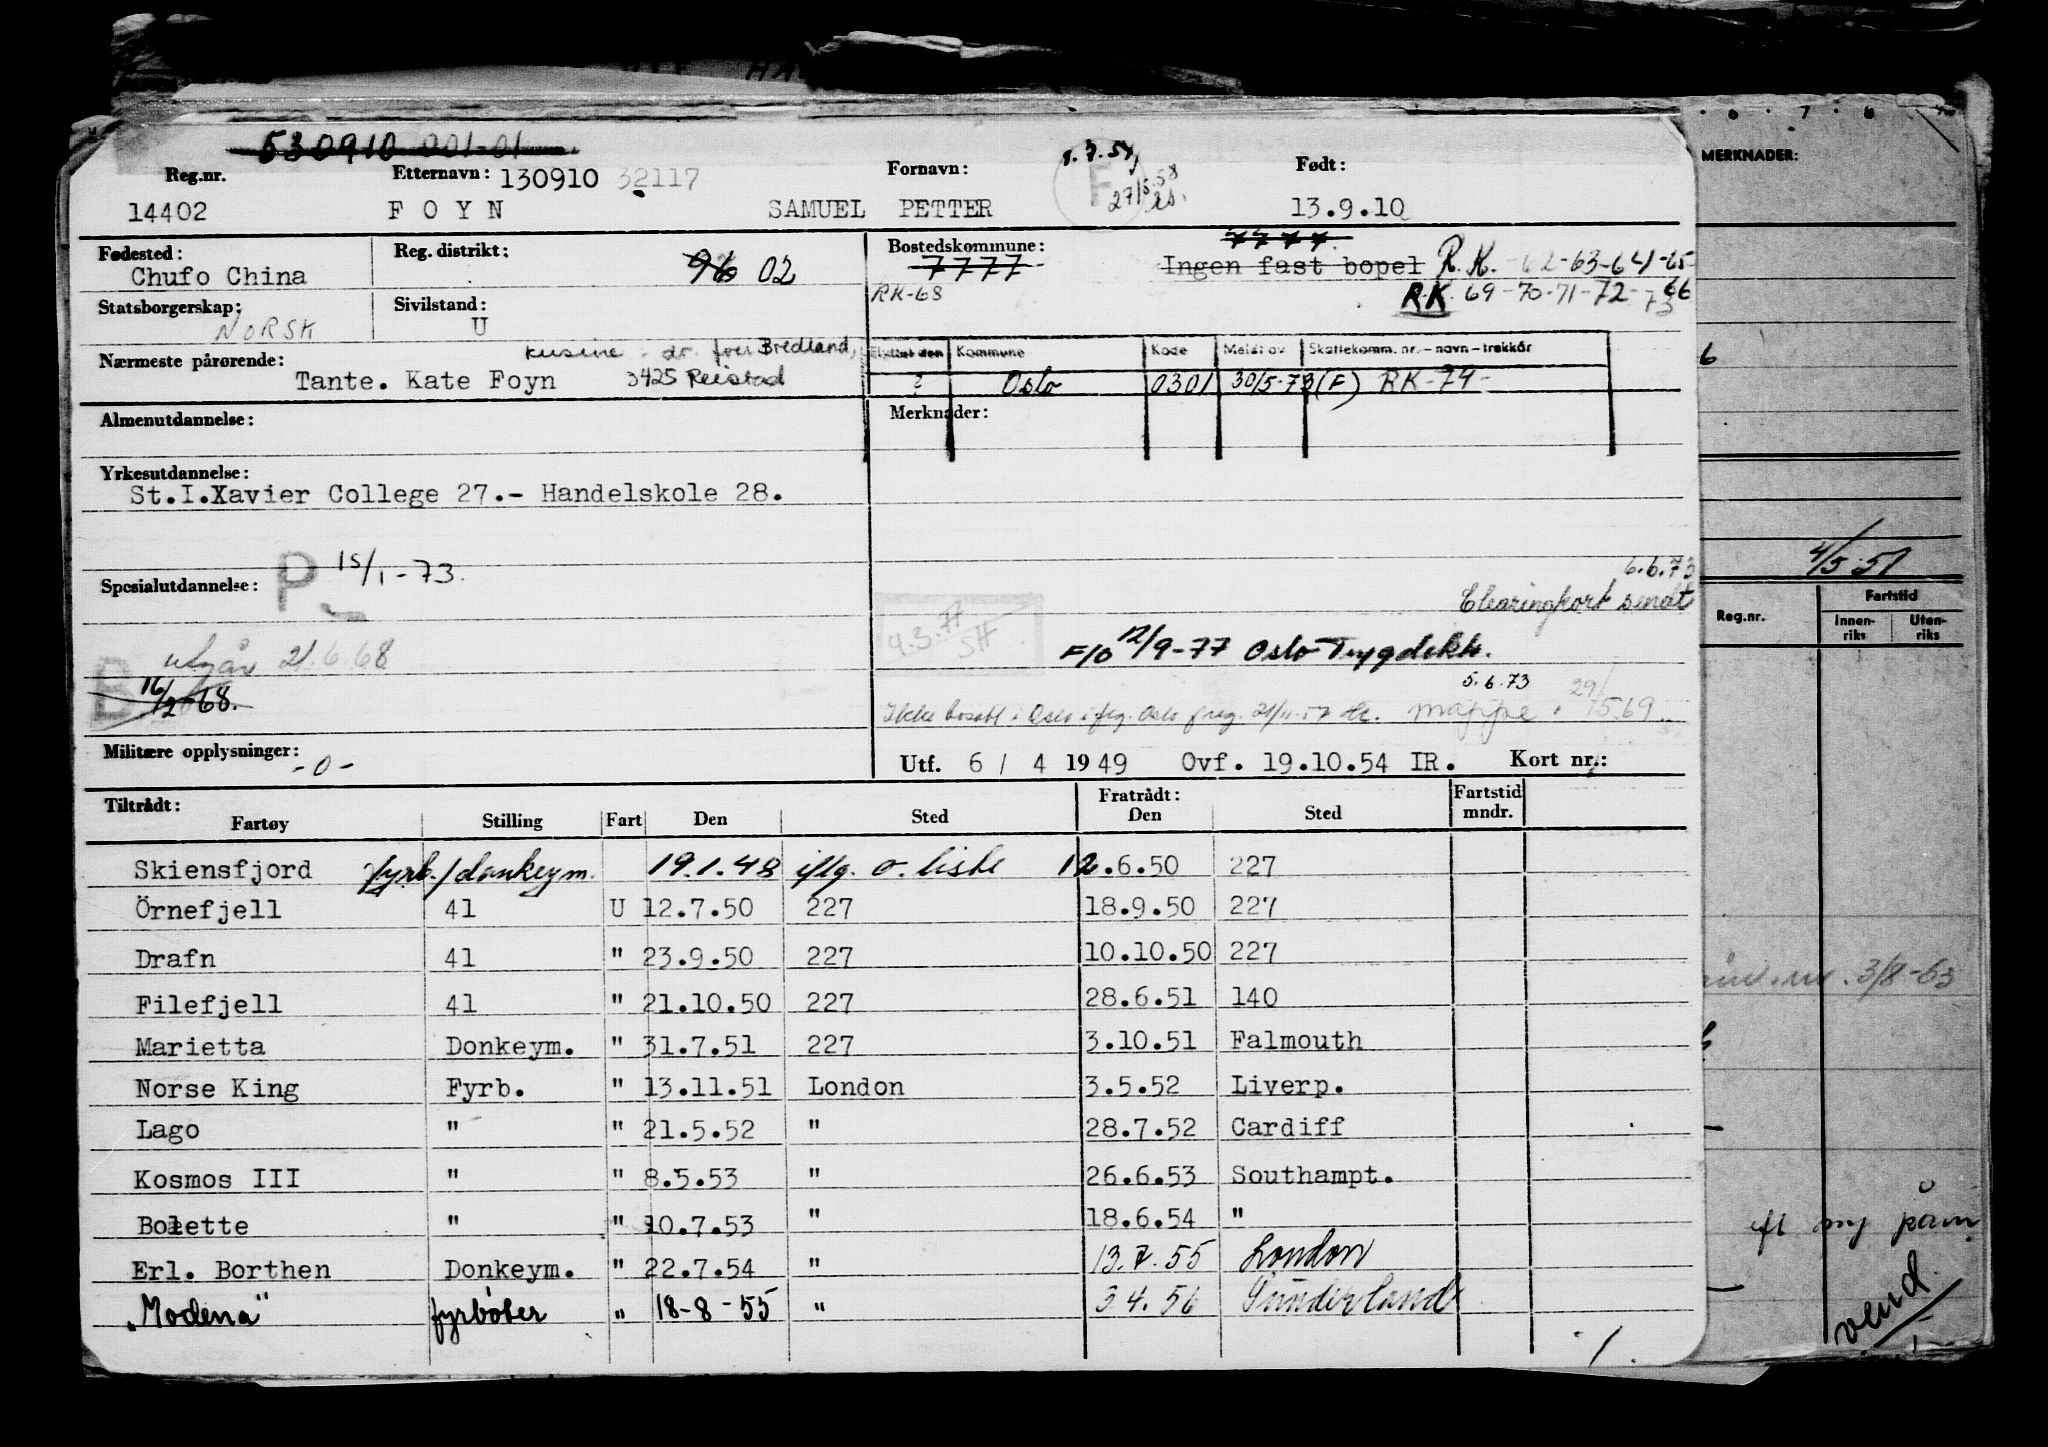 530910 001-01
Reg.nr. Etternavn: 130910 32117 Fornavn: Født:
14402 FOYN SAMUEL PETTER 27/5.58 13.9.10
MERKNADER:
Fødested: Chufo China
Reg. distrikt: 96 02
Bostedskommune: 7777 7777
Ingen fast bopel R.K. -62-63-64-65-66
RK-68 R.K 69-70-71-72-73
Statsborgerskap: NORSK
Sivilstand: U
Nærmeste pårørende: kusine Bredland,
Tante. Kate Foyn 3425 Reistad
Flyttet den Kommune Kode Meldt av Skattekomm. nr. – navn – trekkår
? Oslo 0301 30/5-73 (F) RK-74-
Almenutdannelse:
Merknader:
Yrkesutdannelse:
St.I.Xavier College 27.- Handelskole 28.
Spesialutdannelse: P 15/1-73.
6.6.73
Clearingkort sendt
4/5-51
Reg.nr. Fartstid
Innenriks Utenriks
9.3.77 SH
F/O 12/9-77 Oslo Trygdekk.
utgår 21.6.68
B 16/2-68.
5.6.73
Ikke bosatt i Oslo iflg. Oslo freg. 21/11-57 mappe 29/
Militære opplysninger: -0-
Utf. 6/4 1949 Ovf. 19.10.54 IR. Kort nr.:
Tiltrådt: Fratrådt: Fartstid
Fartøy Stilling Fart Den Sted Den Sted mndr.
Skiensfjord fyrb./donkeym. 19.1.48 iflg. o. liste 12.6.50 227
Örnefjell 41 U 12.7.50 227 18.9.50 227
Drafn 41 " 23.9.50 227 10.10.50 227
Filefjell 41 " 21.10.50 227 28.6.51 140
3/8-63
Marietta Donkeym. " 31.7.51 227 3.10.51 Falmouth
Norse King Fyrb. " 13.11.51 London 3.5.52 Liverp.
Lago " " 21.5.52 " 28.7.52 Cardiff
Kosmos III " " 8.5.53 " 26.6.53 Southampt.
Bolette " " 10.7.53 " 18.6.54 "
Erl. Borthen Donkeym. " 22.7.54 " 13.7.55 London
„Modena" fyrbøter " 18-8-55 " 3.4.56 Sunderland
vend
1.